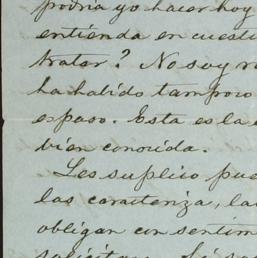 podría yo hacer hoy
entienda en cuesti
tratar? No soy r
ha habido tampoco
espaso. Esta es la
bien conocida.
Les suplico pue
las caracteriza, la
obligan con sentim